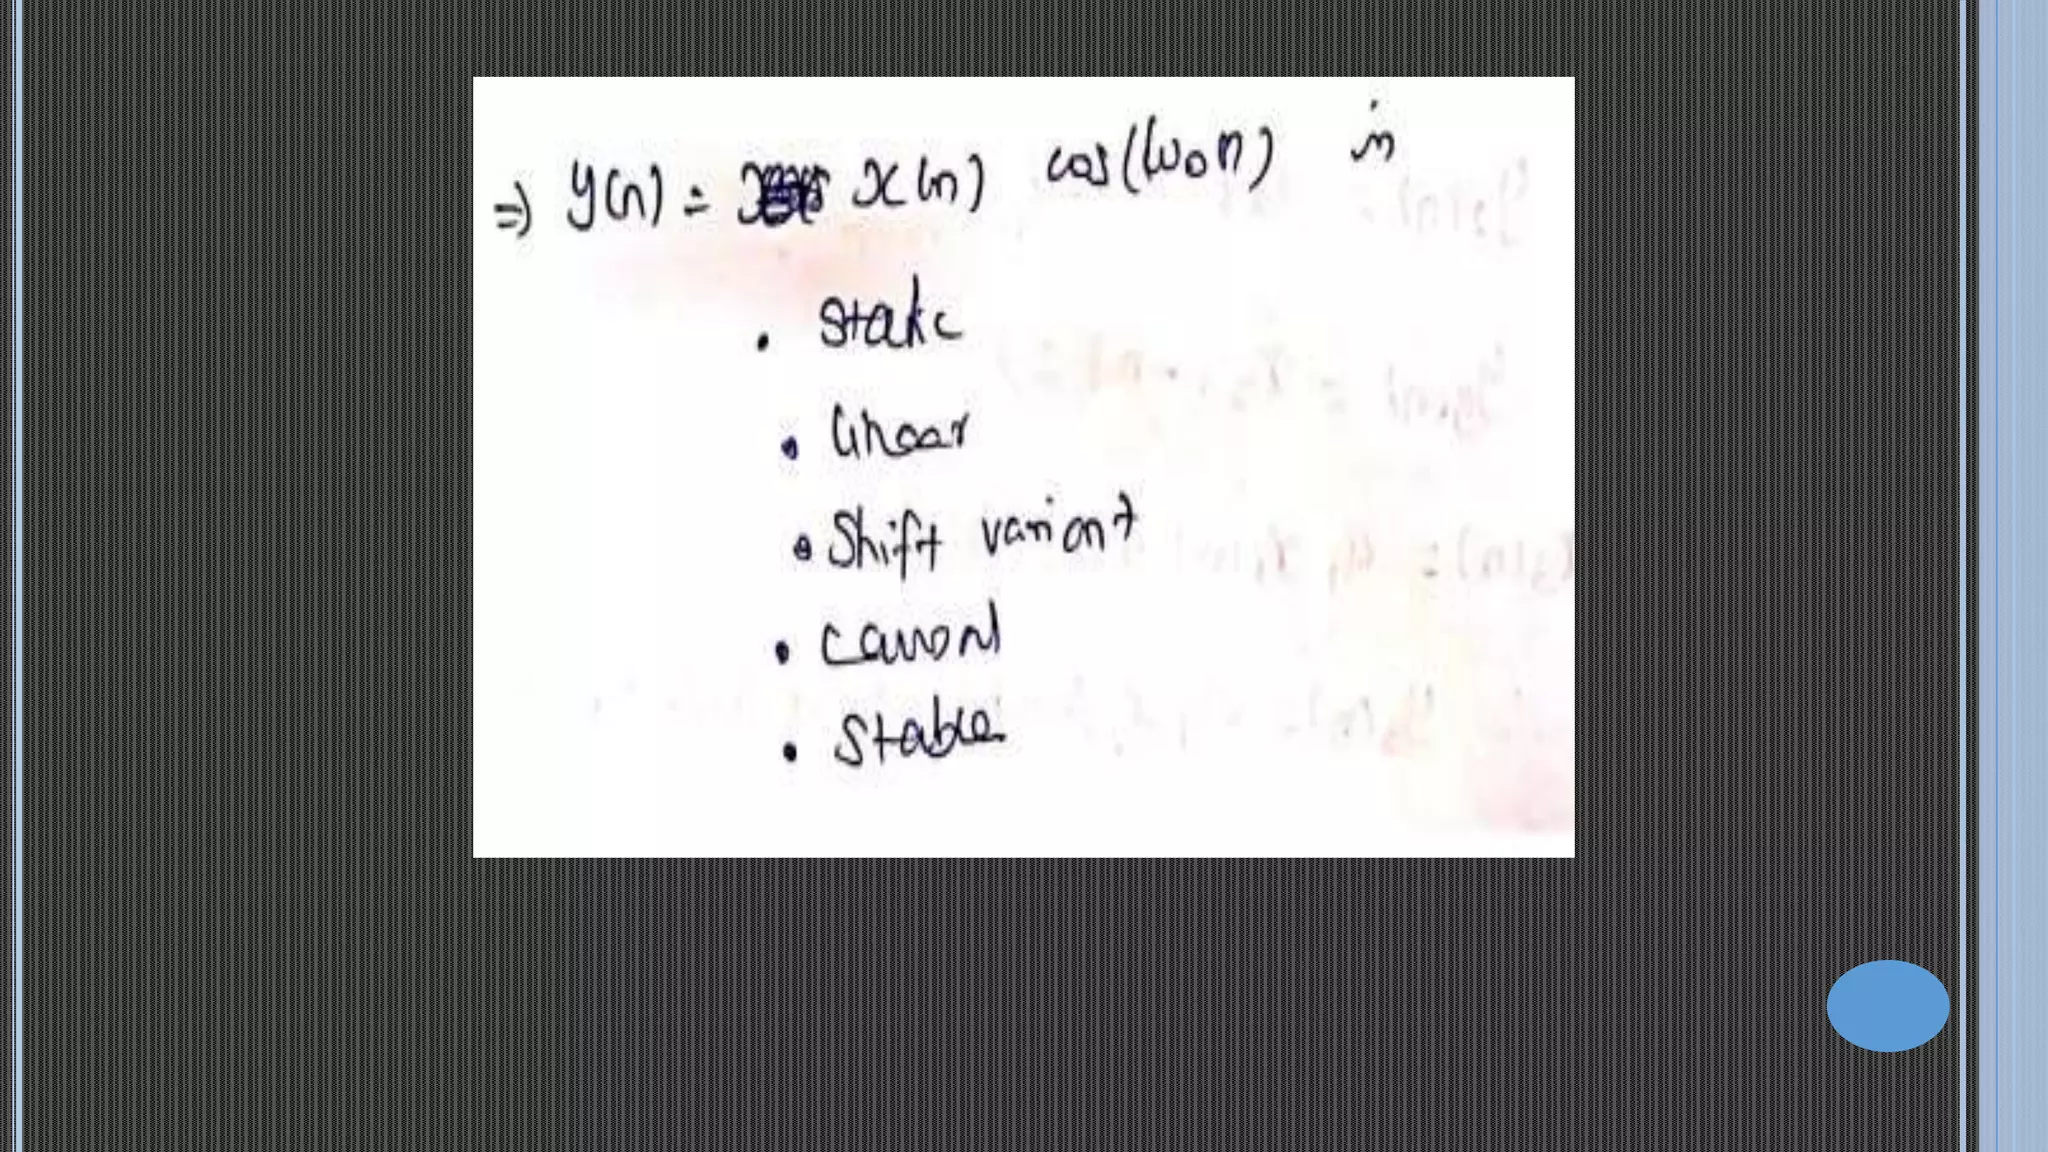 ⇒ y(n) = x(n) cos(ω₀n) is
• static
• linear
• Shift variant
• causal
• stable